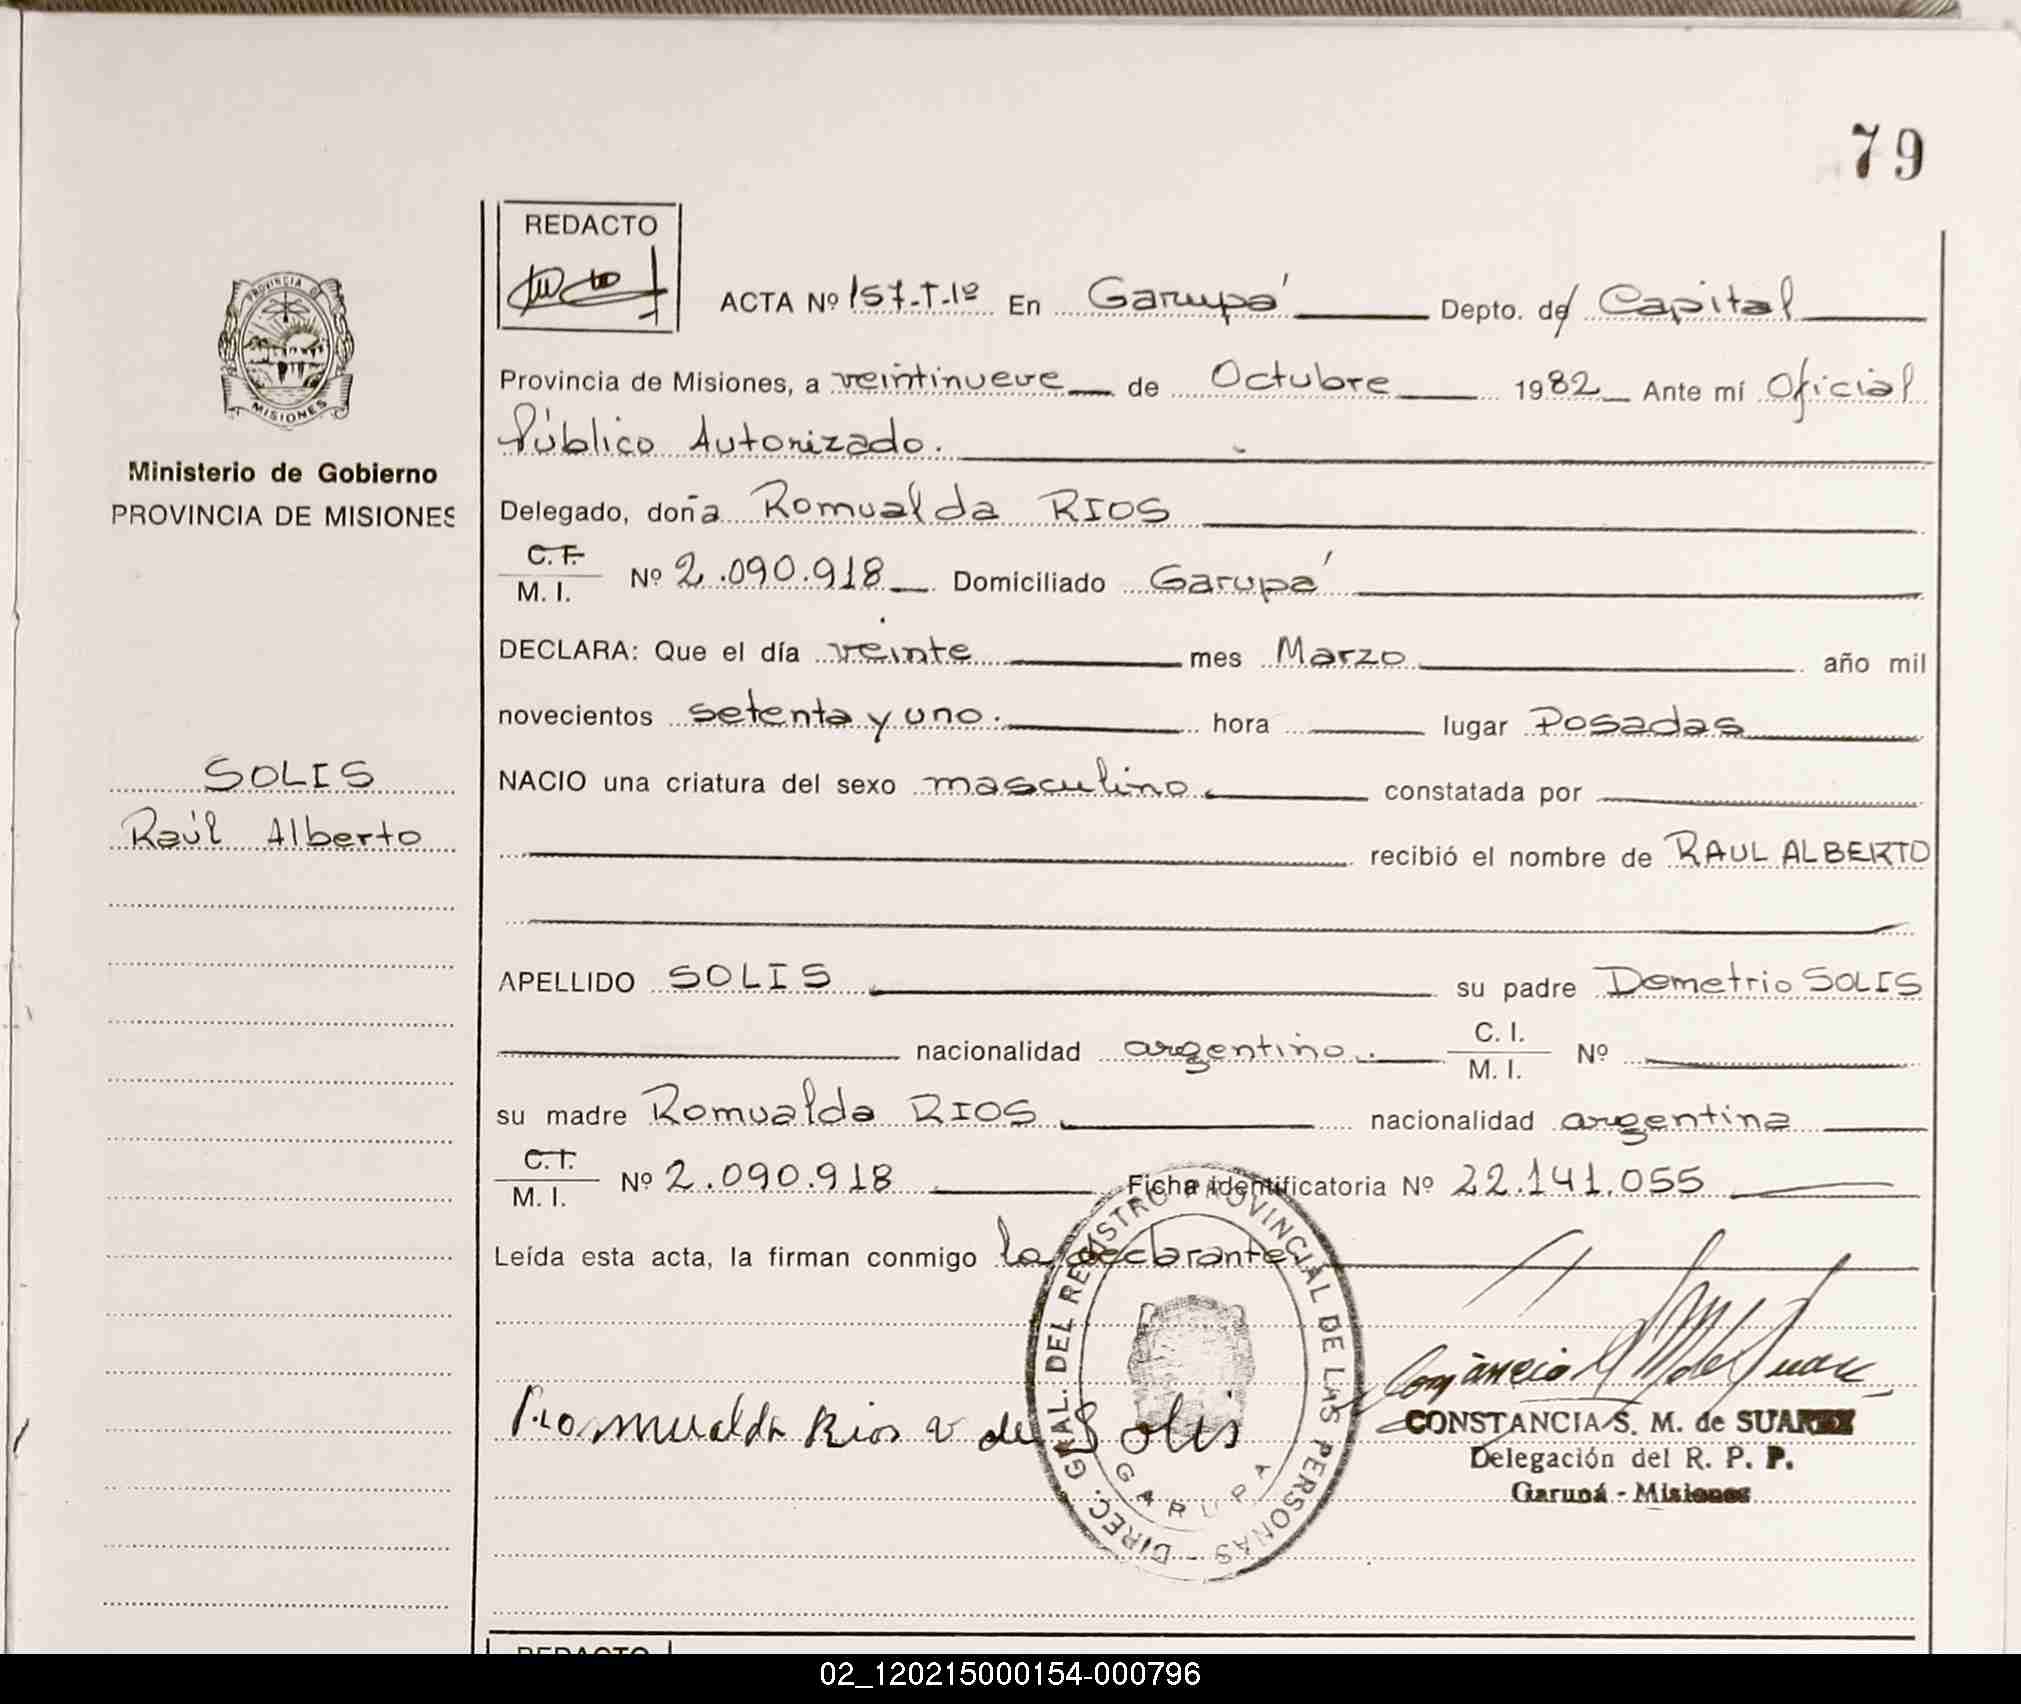 79
REDACTO
ACTA Nº 157-T-1º En Garupá Depto. de Capital
PROVINCIA DE
MISIONES
Provincia de Misiones, a veintinueve de Octubre 1982 Ante mí Oficial
Público Autorizado.
Ministerio de Gobierno
PROVINCIA DE MISIONES
Delegado, doña Romualda RIOS
C. I.
M. I. Nº 2.090.918 Domiciliado Garupá
DECLARA: Que el día veinte mes Marzo año mil
novecientos setenta y uno. hora lugar Posadas
SOLIS
Raúl Alberto
NACIO una criatura del sexo masculino constatada por
recibió el nombre de RAUL ALBERTO
APELLIDO SOLIS su padre Demetrio SOLIS
nacionalidad argentino. C. I.
M. I. Nº
su madre Romualda RIOS nacionalidad argentina
C. I.
M. I. Nº 2.090.918 Ficha identificatoria Nº 22.141.055
Leída esta acta, la firman conmigo la declarante
DIREC. GRAL. DEL REGISTRO PROVINCIAL DE LAS PERSONAS -
GARUPA
Romualda Rios v de Solis
CONSTANCIA S. M. de SUAREZ
Delegación del R. P. P.
Garupá - Misiones
REDACTO
02_120215000154-000796